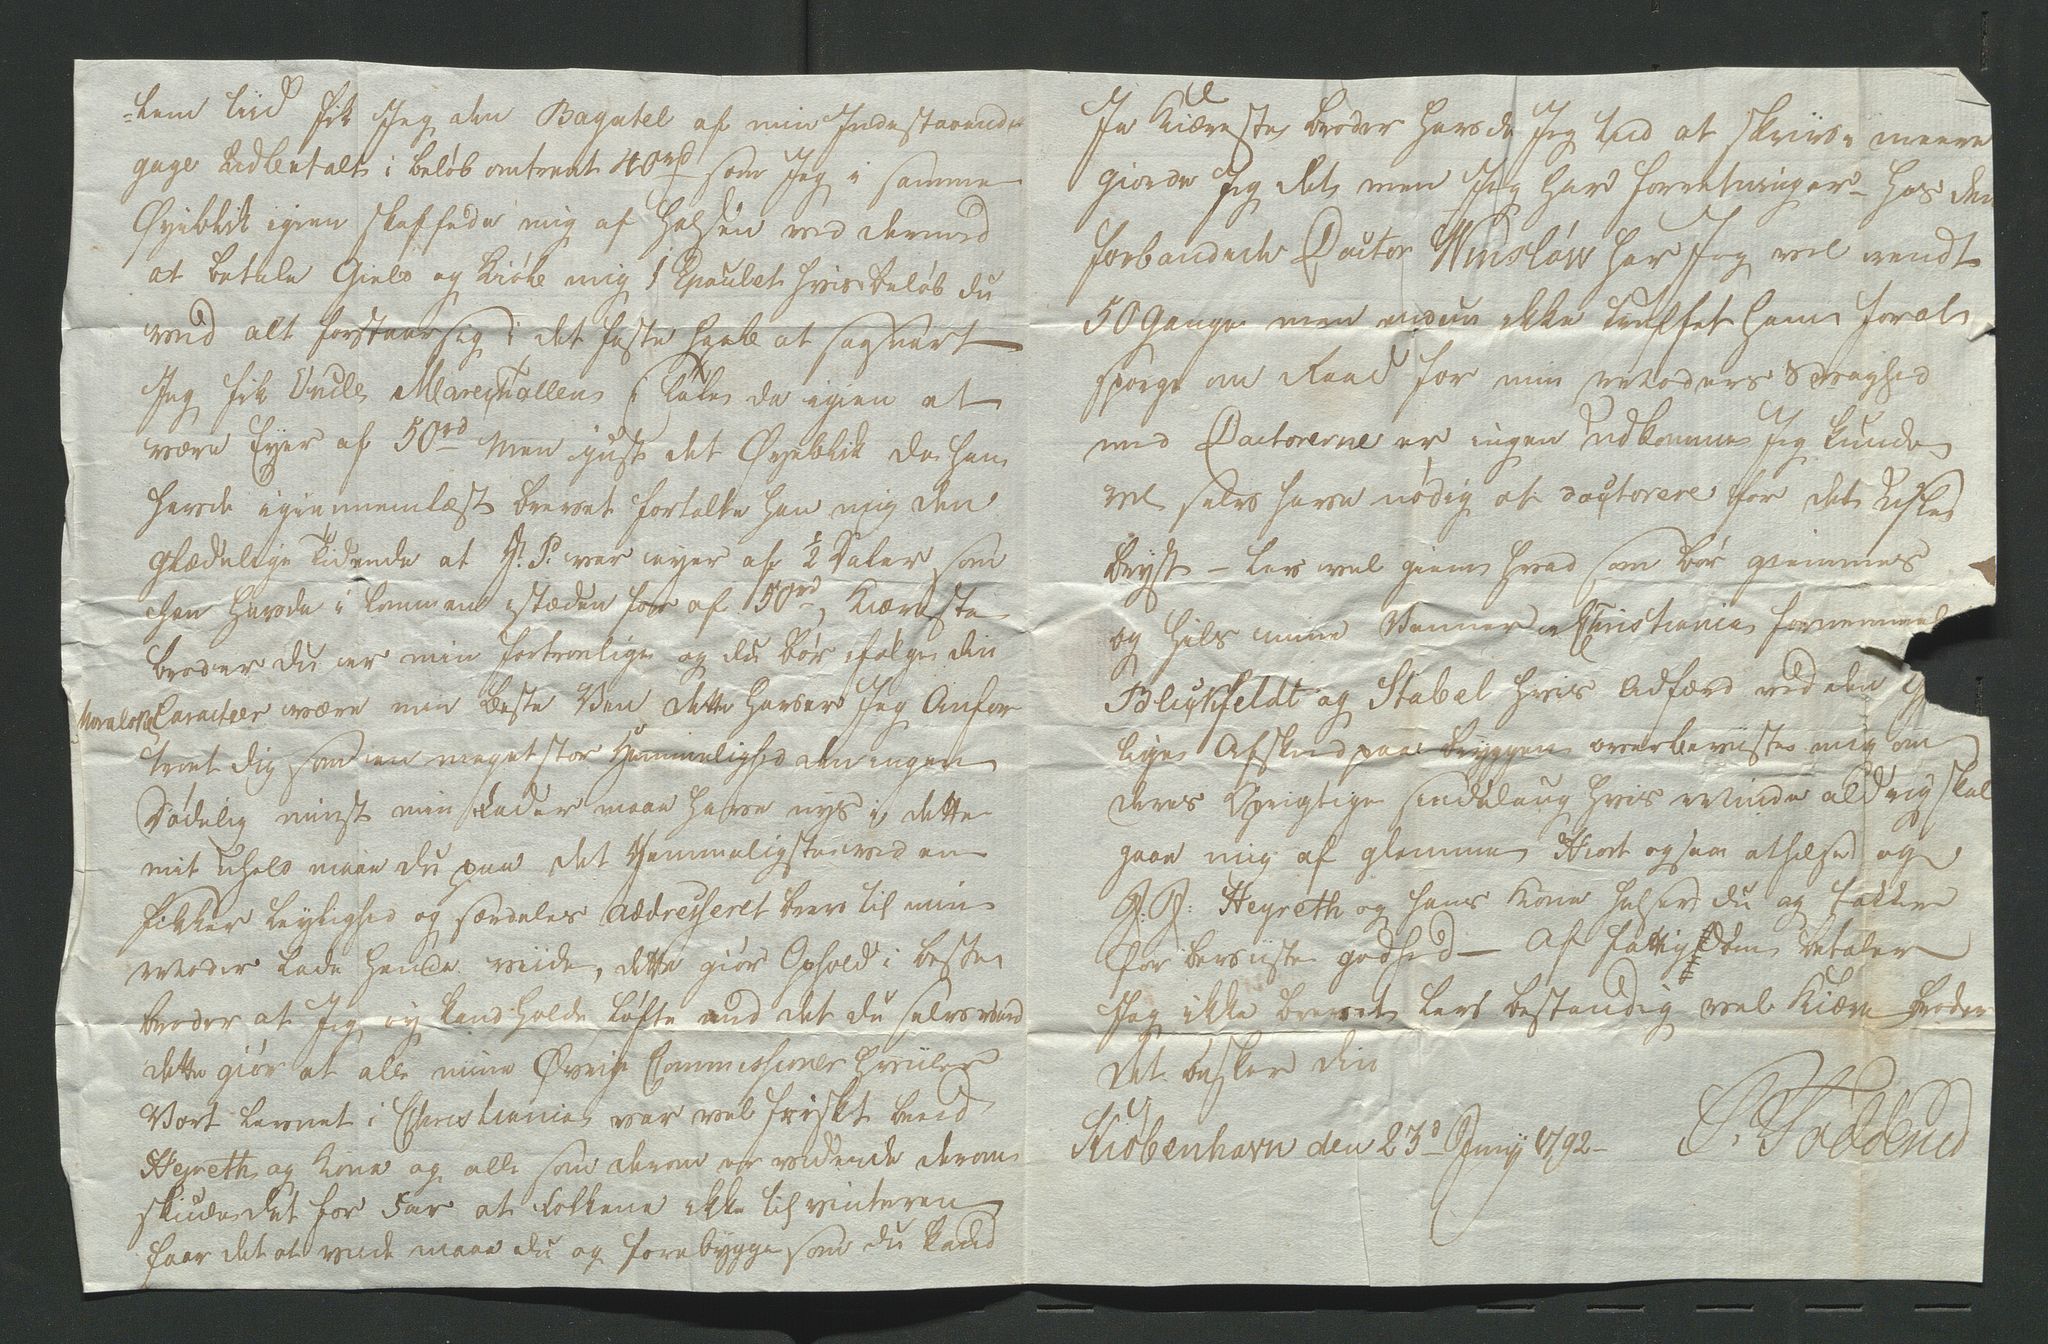 -kem tiid fik Jeg den Bagatel af min Indestaaende
gage Udbetalt i beløb omtrent 40rd som Jeg i samme
Øyeblik igien skaffede mig af Halsen ved dermed
at betale Gield og Kiøbe mig 1 Epaulet hvis beløb du
ved alt forstaar sig i det faste Haab at saasnart
Jeg fik Uncle Marechallens Talen da igien at
være Eyer af 50rd Men just det Øyeblik da han
havde igiennemlæst brevet fortalte han mig den
glædelige Tidende at J: P. var eyer af ½ Daler som
han havde i Lommen istæden for af 50rd, Kiæreste
broder du er min fortrolige og du bør ifølge din
Moralske Caracteer være min beste Ven dette haver Jeg Anfor
troet dig som en meget stor Hemmelighed den ingen
Dødelig minst min Fader maae have nys i, dette
mit Uheld maae du paa det Hemmeligste ved en
sikker leylighed og særdeles addresseret brev til min
Moder lade hende viide, dette giør Ophold i beste
broder at Jeg ey kand holde Løfte med det du selv veed
dette giør at alle mine Øvrige Commissioner hviiler
Vort levnet i Christiania var vel friskt beed
Heyreth og Kone og alle som derom er vidende derom
skiude det for Far at Folkene ikke til vinteren
faar det at viide maae du og forebygge som du kand
Ja Kiæreste broder havde Jeg tid at skrive meere
giorde Jeg det men Jeg har forretninger hos den
forbandede Doctor Winsløw har Jeg vel rendt
50 gange men endnu ikke truffet ham for at
spørge om Raad for min Moders Svaghed
med Doctorerne er ingen Udkomme Jeg kunde
vel selv have nødig at doctorere for det Usle
bryst – lev vel giem hvad som bør giemmes
og hils mine Venner i Christiania fornemmel
Blickfeldt og Stabel hvis Adfærd ved den
lige Afskeed paa bryggen overbeviiste mig om
deres Oprigtige sindelaug hvis Minde aldrig skal
gaae mig af glemme Hiort ogsaa at hilse og
J: J: Heyreth og hans Kone hilser du og takker
for beviiste godhed – Af fattigdom betaler
Jeg ikke brevet lev bestandig vel Kiære broder
det ønsker din
Kiøbenhavn den 23d Juny 1792 –
C. Paddend